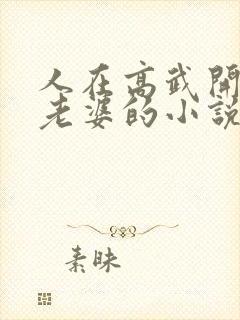 人在高武開
老婆的小說
素昧